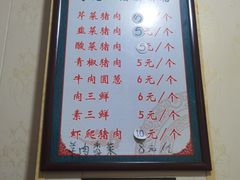 芹菜猪肉 6元/个
韭菜猪肉 5元/个
酸菜猪肉 5元/个
青椒猪肉 5元/个
牛肉圆葱 6元/个
肉三鲜 6元/个
素三鲜 5元/个
虾爬猪肉 10元/个
羊肉 菜 8元/个